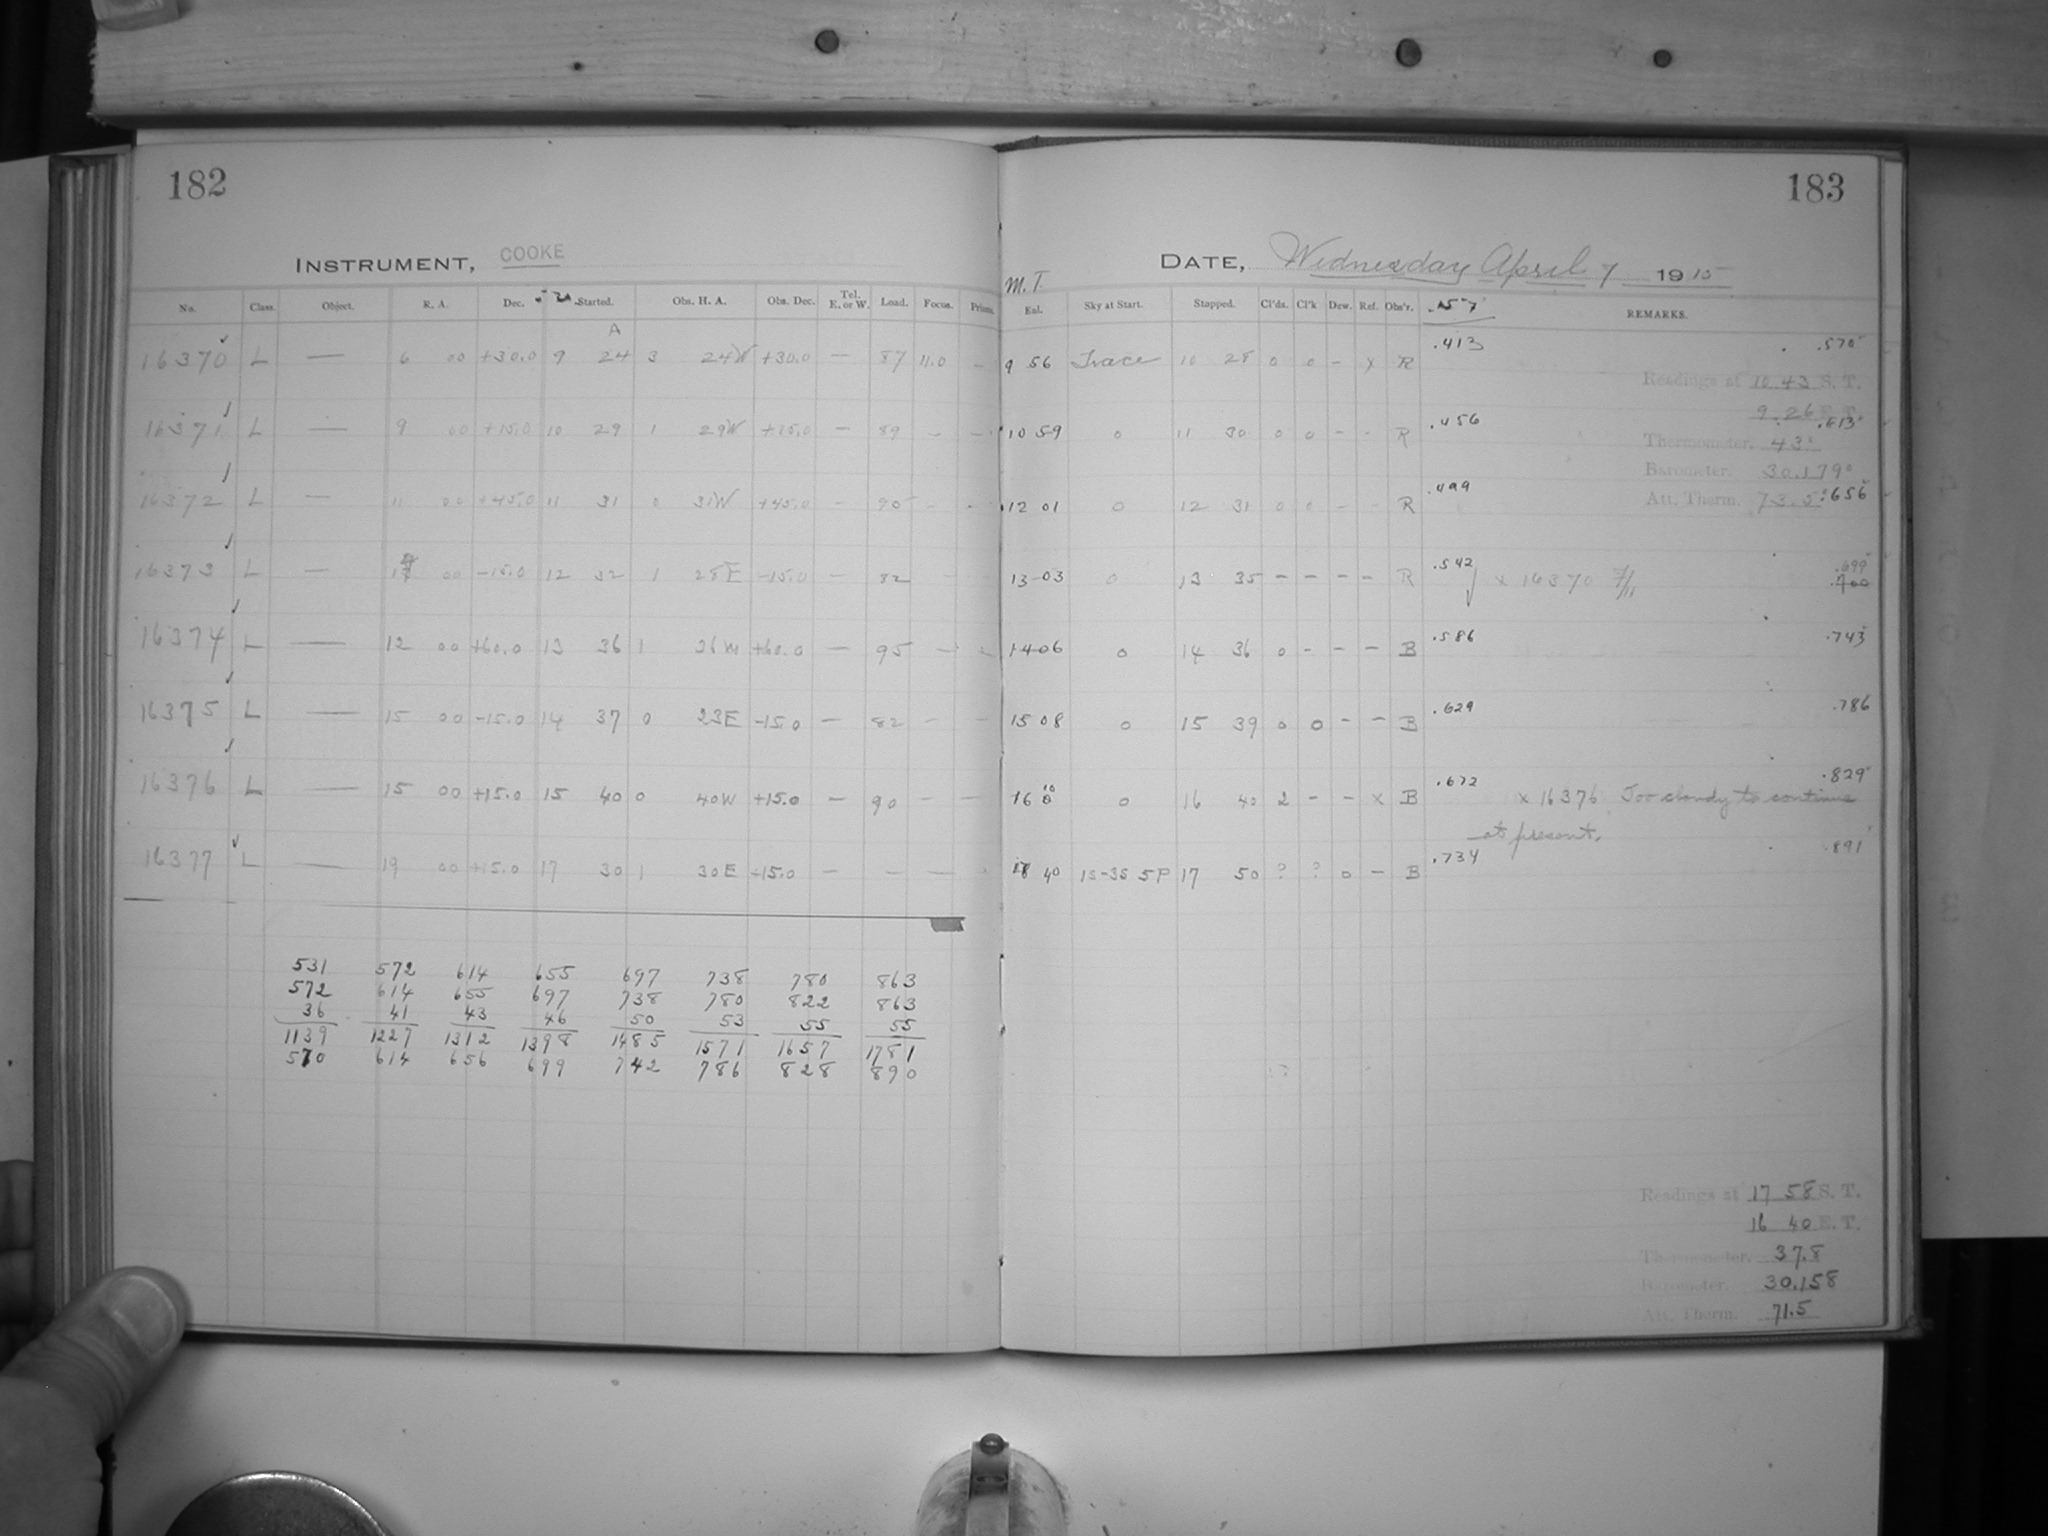 182
INSTRUMENT, COOKE
No. Class. Object. R. A. Dec. Started. Obs. H. A. Obs. Dec. Tel. E. or W. Load. Focus. Prism.
A
16370 L — 6 00 +30.0 9 24 3 24W +30.0 — 87 11.0 —
16371 L — 9 00 +15.0 10 29 1 29W +15.0 — 89 – –
16372 L — 11 00 +45.0 11 31 0 31W +45.0 – 90 – –
16373 L — 00 -15.0 12 32 1 28E -15.0 – 82
16374 L — 12 00 +60.0 13 36 1 36W +60.0 — 95 –
16375 L — 15 00 -15.0 14 37 0 23E -15.0 — 82 – –
16376 L — 15 00 +15.0 15 40 0 40W +15.0 — 90 – —
16377 L — 19 00 +15.0 17 30 1 30E +15.0 — – —
531 572 614 655 697 738 780 863
572 614 655 697 738 780 822 863
36 41 43 46 50 53 55 55
1139 1227 1312 1398 1485 1571 1657 1781
570 614 656 699 742 786 828 890
183
DATE, Wednesday April 7 1915
M. T.
Enl. Sky at Start. Stopped. Cl'ds. Cl'k Dew. Ref. Obs'r. .157 REMARKS.
9 56 Trace 10 28 0 0 – x R .413 .570
Readings at 10 43 S. T.
9.26 E. T.
10 59 0 11 30 0 0 – – R .456 .613
Thermometer. 43
Barometer. 30.179
12 01 0 12 31 0 0 – – R .499 .656
Att. Therm. 73.5
13 03 0 13 35 – – – – R .542 x 16370 7/11 .699
.700
14 06 0 14 36 0 – – – B .586 .743
15 08 0 15 39 0 0 – – B .629 .786
16 10 0 16 40 2 – – x B .672 x 16376 Too cloudy to continue .829
at present.
18 40 1s-3s 5P 17 50 ? ? 0 – B .734 .891
Readings at 17 58 S. T.
16 40 E. T.
Thermometer. 37.8
Barometer. 30.158
Att. Therm. 71.5